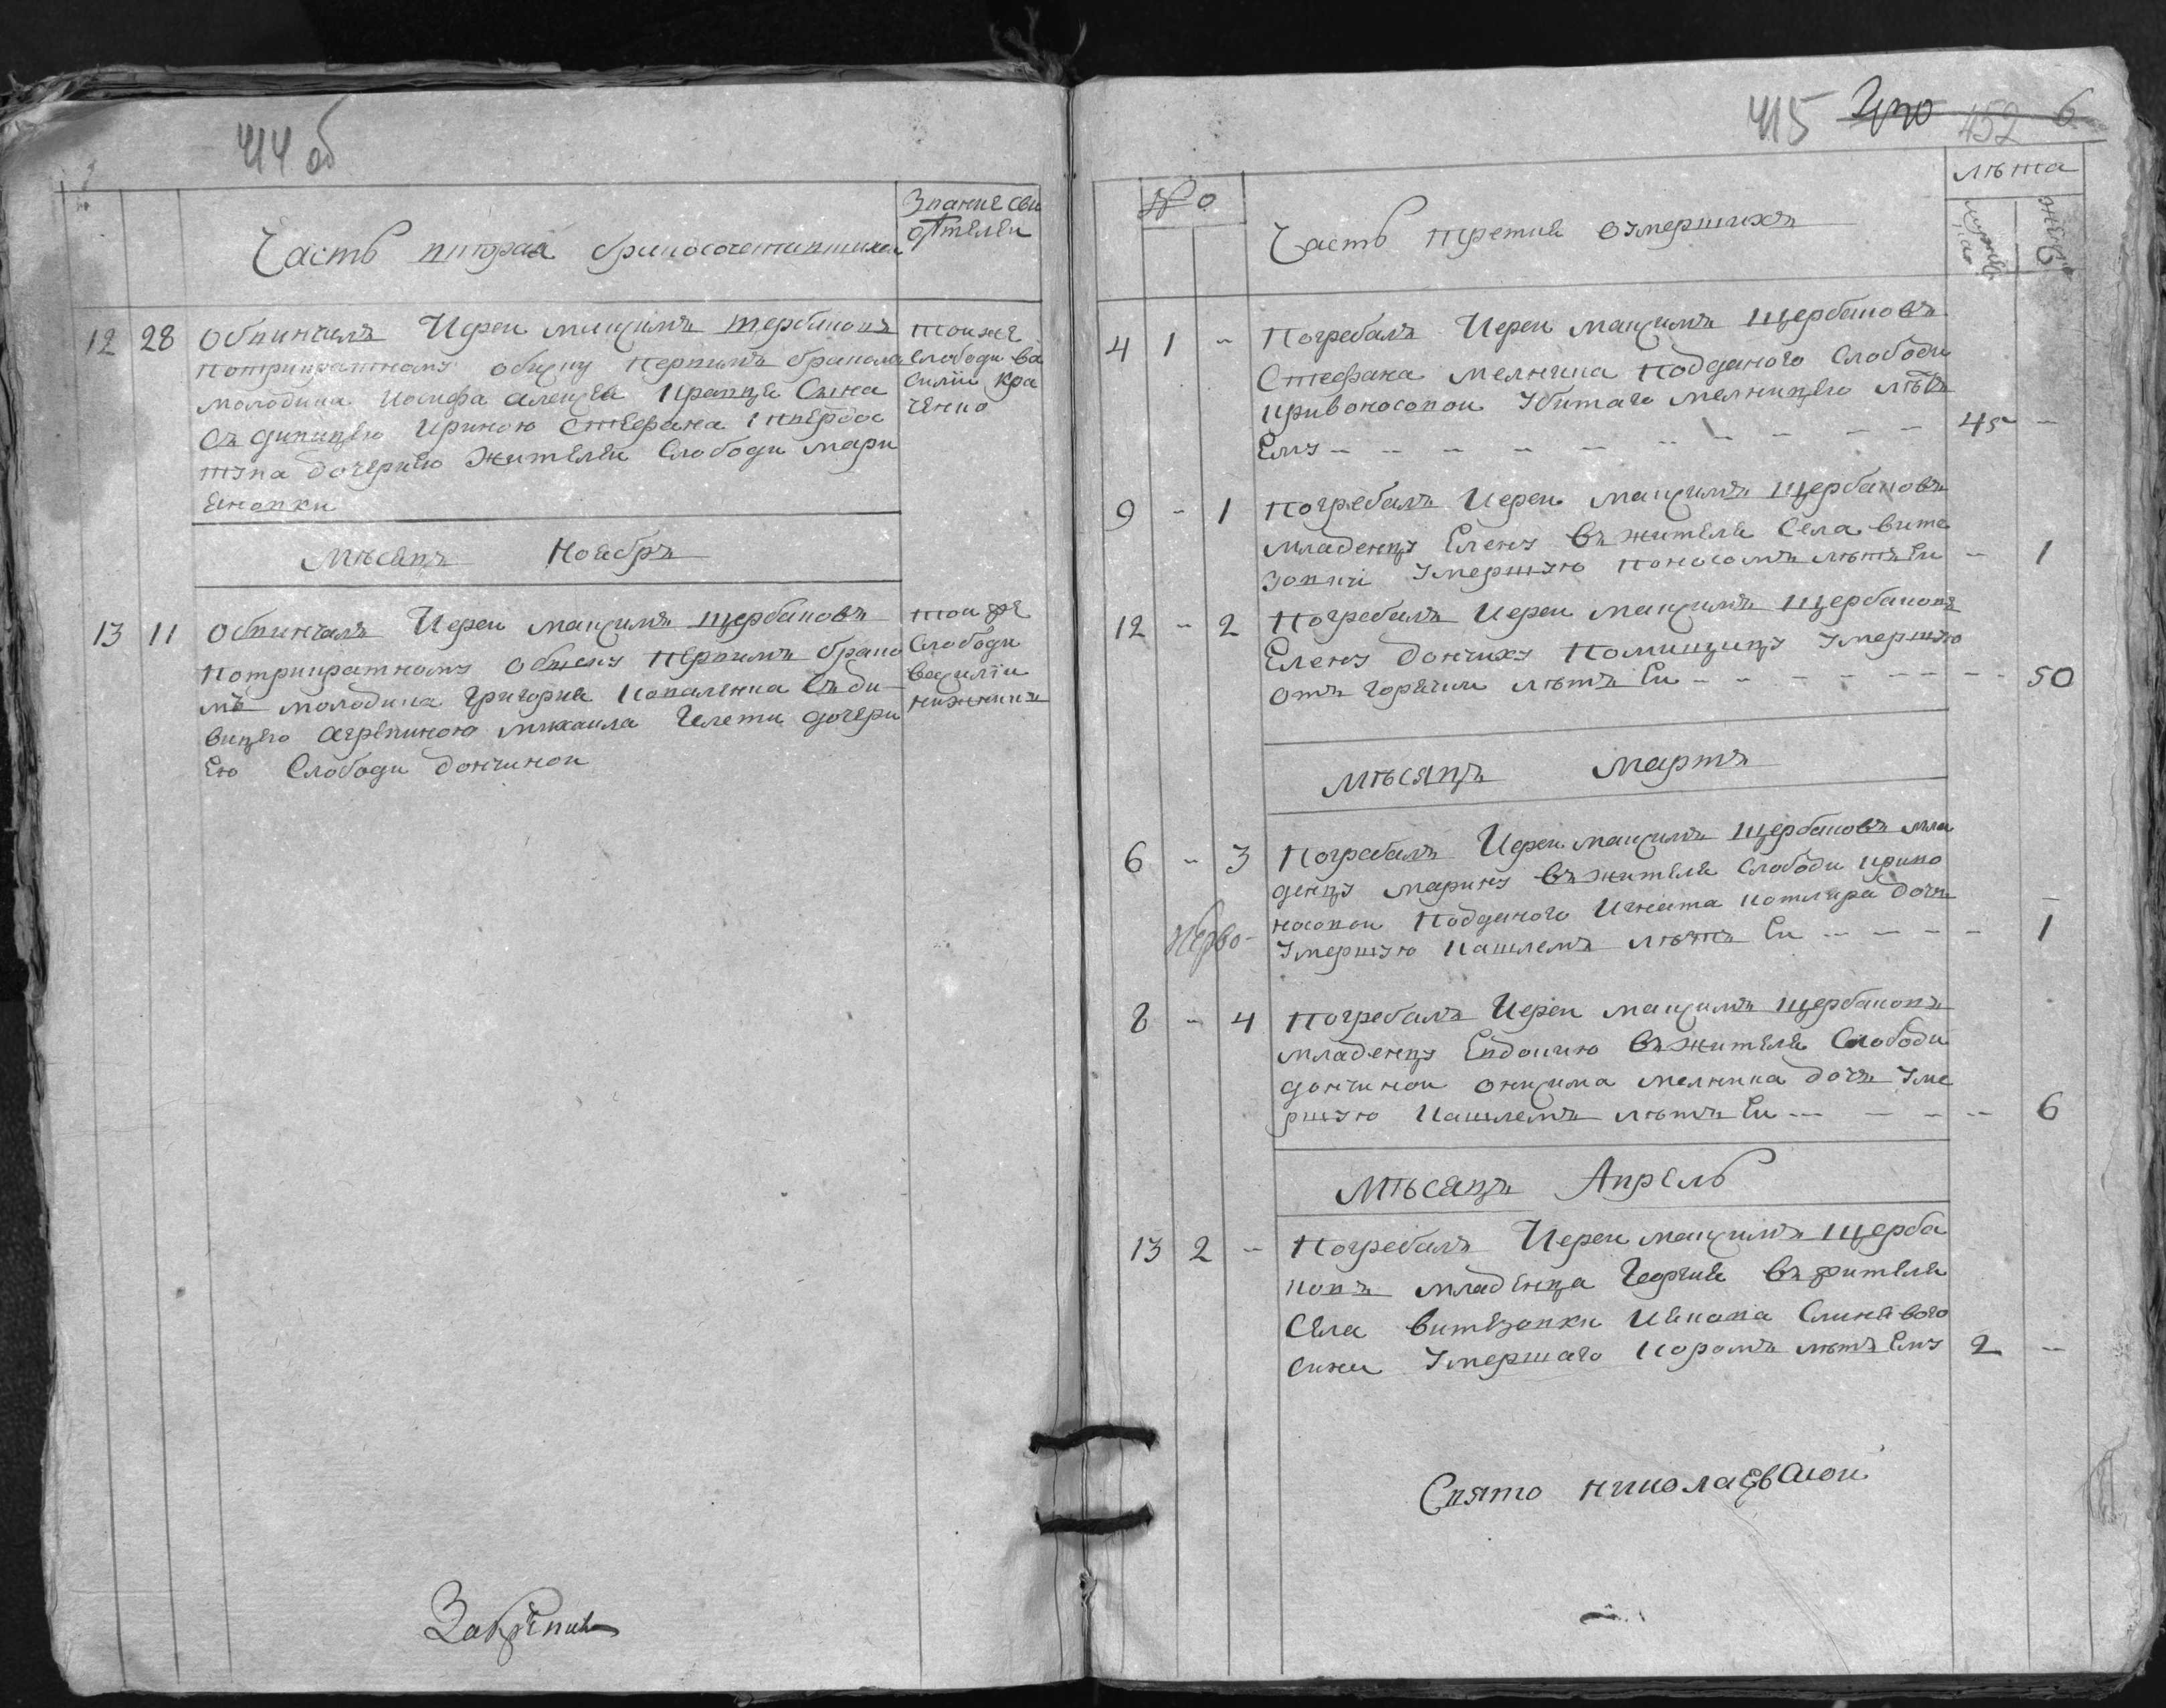 414 об
Часть вторая бракосочетавшихся
Знание сви
детелеи
12 28 Обвинчалъ Иереи Маξимъ Щербаковъ
потрикратному обиску первимъ бракомъ
молодика Иосифа Алеξея Кравца Сина
съ дивицею Ириною Стефана
дочерию жителеи Слободи Мари
еновки
тоижъ
Слободи ва
силии Кра
ченко
Мѣсяцъ Ноябрь
13 11 Обвинчалъ Иереи Маξимъ Щербаковъ
потрикратному обиску первимъ брако
мъ молодика Григория Коваленка съ ди
вицею Агрепиною Михаила Гелети дочери
ею Слободи Дончиной
тои же
Слободи
василии
Закрепилъ
415 452 6
№ о
Часть третия о умершихъ
лѣта
мужеска
женска
4 1 - Погребалъ Иереи Маξимъ Щербаковъ
Стефана Мелника подданого Слободи
Кривоносовои убитаго мелницею лѣтъ
Ему 45 -
9 - 1 Погребалъ Иереи Маξимъ Щербаковъ
младенцу Елену въ жителя Села вите
зовки умершую поносомъ лѣтъ Еи - 1
12 - 2 Погребалъ Иереи Маξимъ Щербаковъ
Елену Дончиху помищицу умершую
отъ горячки лѣтъ Еи - 50
Мѣсяцъ Мартъ
6 - 3 Погребалъ Иереи Маξимъ Щербаковъ мла
денцу Марину въ жителя Слободи криво
носовои подданого Игната Котляра дочь
умершую кашлемъ лѣтъ Еи - 1
8 - 4 Погребалъ Иереи Маξимъ Щербаковъ
младенцу Евдокию въ жителя Слободи
дончинои Ониξима Мелника дочь уме
ршую кашлемъ лѣтъ Еи - 6
Мѣсяцъ Апрель
13 2 - Погребалъ Иереи Маξимъ Щерба
ковъ младенца Георгия въ жителя
Села витезовки Иякова Слинявого
Сина умершаго коромъ лѣтъ Ему 2 -
Свято Николаевской